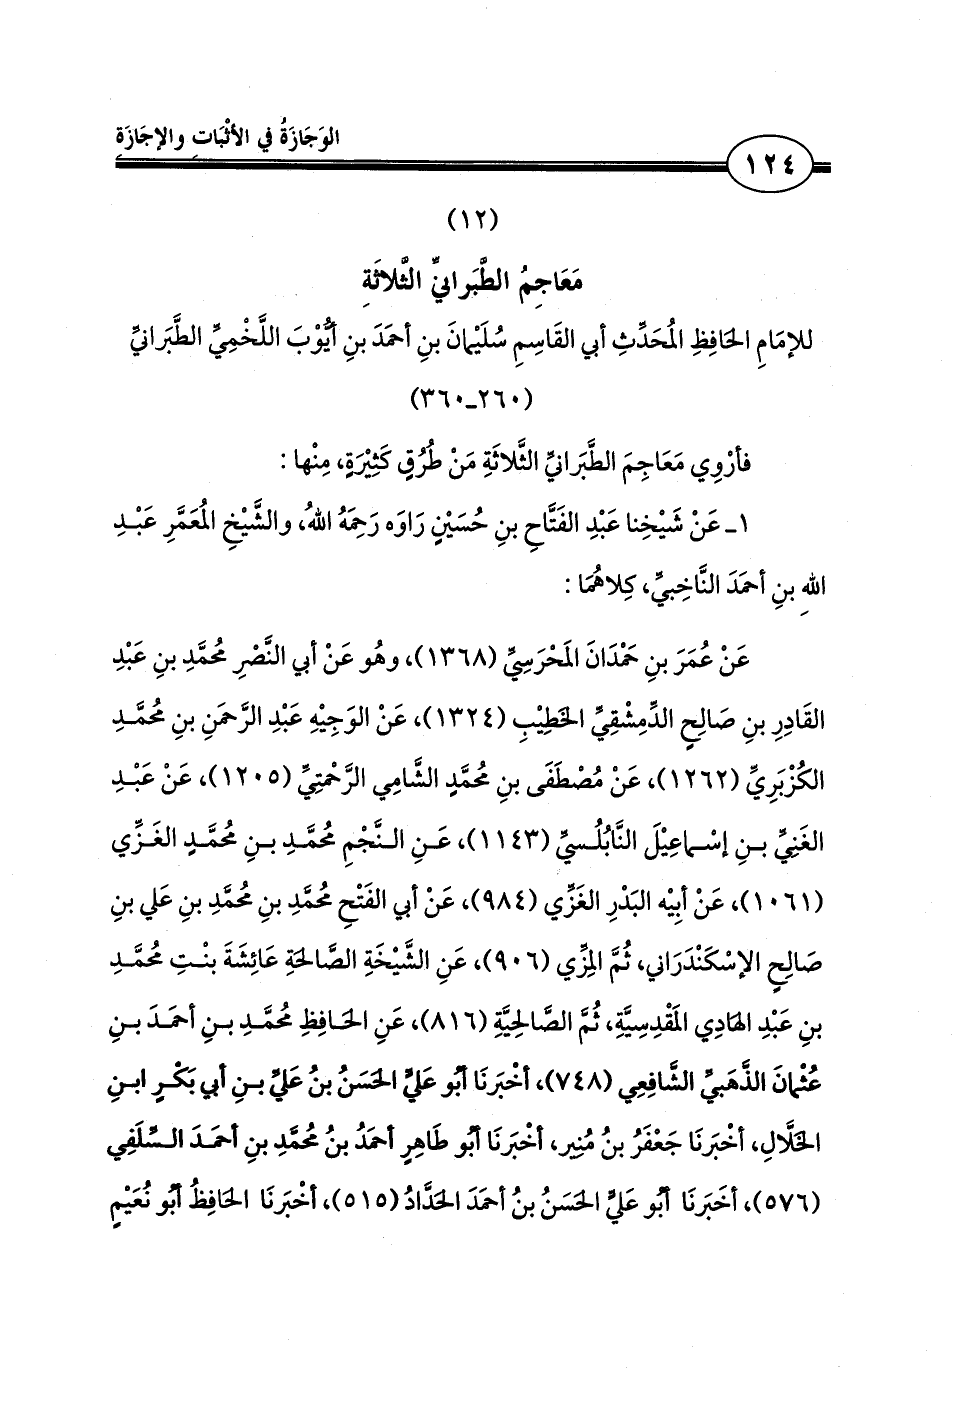 الوَجَازَةُ في الأَثْبَاتِ والإجَازَةِ
١٢٤
(١٢)
مَعَاجِمُ الطَّبَرانيِّ الثَّلاثَةِ
للإمَامِ الحَافِظِ المُحَدِّثِ أبي القَاسِمِ سُلَيْمانَ بنِ أحمَدَ بنِ أيُّوْبَ اللَّخْمِيِّ الطَّبَرَانيِّ
(٢٦٠ـ٣٦٠)
فأرْوِي مَعَاجِمَ الطَّبَرانيِّ الثَّلاثَةِ مَنْ طُرُقٍ كَثِيْرَةٍ، مِنْها :
١ـ عَنْ شَيْخِنا عَبْدِ الفَتَّاحِ بنِ حُسَيْنٍ رَاوَه رَحِمَهُ اللهُ، والشَّيْخِ المُعَمَّرِ عَبْدِ
اللهِ بنِ أحمَدَ النَّاخِبيِّ، كِلاهُمَا :
عَنْ عُمَرَ بنِ حَمْدَانَ المَحْرَسِيِّ (١٣٦٨)، وهُو عَنْ أبي النَّصْرِ مُحمَّدِ بنِ عَبْدِ
القَادِرِ بنِ صَالِحٍ الدِّمشْقِيِّ الخَطِيْبِ (١٣٢٤)، عَنْ الوَجِيْهِ عَبْدِ الرَّحمَنِ بنِ مُحمَّدٍ
الكُزْبَرِيِّ (١٢٦٢)، عَنْ مُصْطَفَى بنِ مُحمَّدٍ الشَّامي الرَّحْمتِيِّ (١٢٠٥)، عَنْ عَبْدِ
الغَنِيِّ بنِ إسْماعِيْلَ النَّابُلُسيِّ (١١٤٣)، عَنِ النَّجْمِ مُحمَّدِ بنِ مُحمَّدٍ الغَزِّي
(١٠٦١)، عَنْ أبِيْه البَدْرِ الغَزِّي (٩٨٤)، عَنْ أبي الفَتْحِ مُحمَّدِ بنِ مُحمَّدِ بنِ عَلي بنِ
صَالِحٍ الإسْكَنْدَراني، ثُمَّ المِزِّي (٩٠٦)، عَنِ الشَّيْخَةِ الصَّالحَةِ عَائِشَةَ بنْتِ مُحمَّدِ
بنِ عَبْدِ الهَادِي المَقْدِسِيَّةِ، ثُمَّ الصَّالحِيَّةِ (٨١٦)، عَنِ الحَافِظِ مُحمَّدِ بنِ أحمَدَ بنِ
عُثْمانَ الذَّهَبيِّ الشَّافِعِي (٧٤٨)، أخْبرَنَا أبُو عَليٍّ الحَسَنُ بنُ عَليِّ بنِ أبي بَكْرٍ ابنِ
الخَلَّالِ، أخْبرَنَا جَعْفَرُ بنُ مُنِير، أخْبرَنَا أبُو طَاهِرٍ أحمَدُ بنُ مُحمَّدِ بنِ أحمَدَ السِّلَفِي
(٥٧٦)، أخَبرَنَا أبُو عَليٍّ الحَسَنُ بنُ أحمَدَ الحَدَّادُ (٥١٥)، أخْبرَنَا الحَافِظُ أبُو نُعَيْمٍ